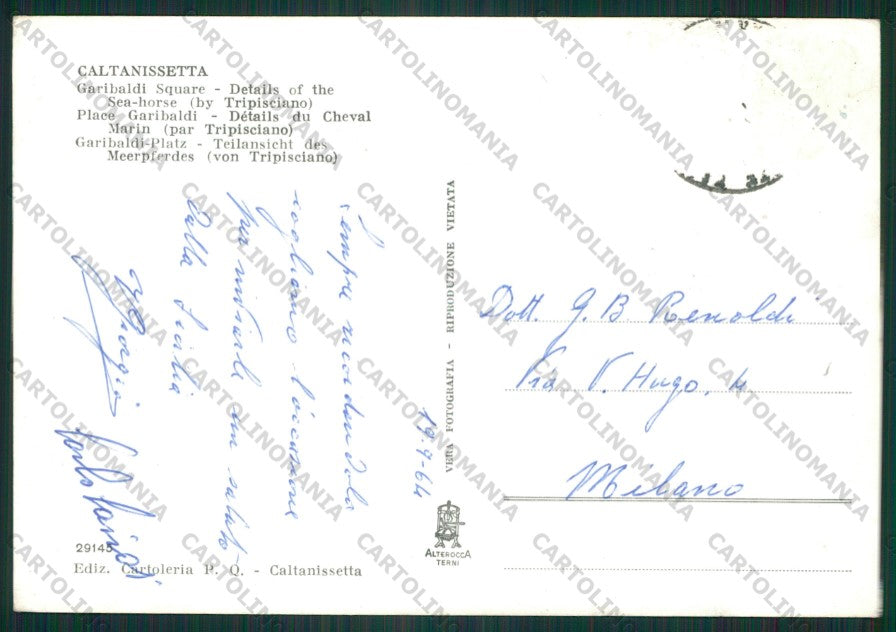 CALTANISSETTA
Garibaldi Square - Details of the
Sea-horse (by Tripisciano)
Place Garibaldi - Détails du Cheval
Marin (par Tripisciano)
Garibaldi-Platz - Teilansicht des
Meerpferdes (von Tripisciano)
Sempre ricordandola
cogliamo l'occasione
per inviarle un saluto
dalla Sicilia
19-9-64
VERA FOTOGRAFIA - RIPRODUZIONE VIETATA
Dott. G. B. Renoldi
Via V. Hugo, 4
Milano
ALTEROCCA
TERNI
29145
Ediz. Cartoleria P. Q. - Caltanissetta
CARTOLINOMANIA